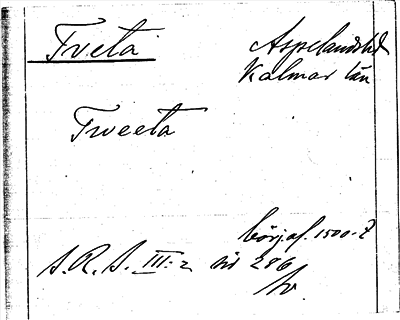 Tveta Aspelands hd
Kalmar län
Tweeta
börj. af. 1500-t
S.R.S. III:2 sid 286